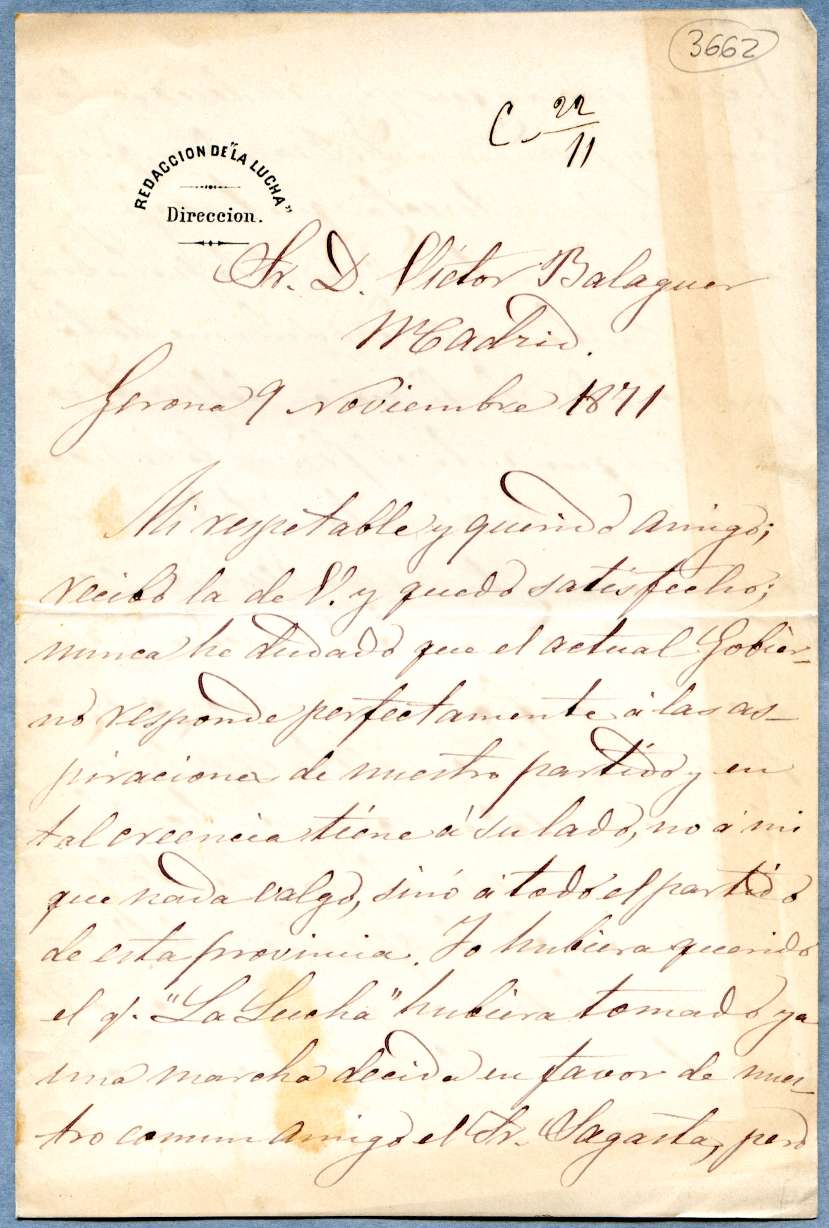 3662
C. 22/11
REDACCION DE "LA LUCHA"
Direccion.
Sr. D. Víctor Balaguer
Madrid.
Gerona 9 Noviembre 1871
Mi respetable y querido amigo;
recibo la de V. y quedo satisfecho;
nunca he dudado que el actual Gobier-
no responde perfectamente á las as-
piraciones de nuestro partido y en
tal creencia tiene á su lado, no á mi
que nada valgo, sinó á todo el partido
de esta provincia. Yo hubiera querido
el q. "La Lucha" hubiera tomado ya
una marcha decida en favor de nues-
tro comun amigo el Sr. Sagasta, pero